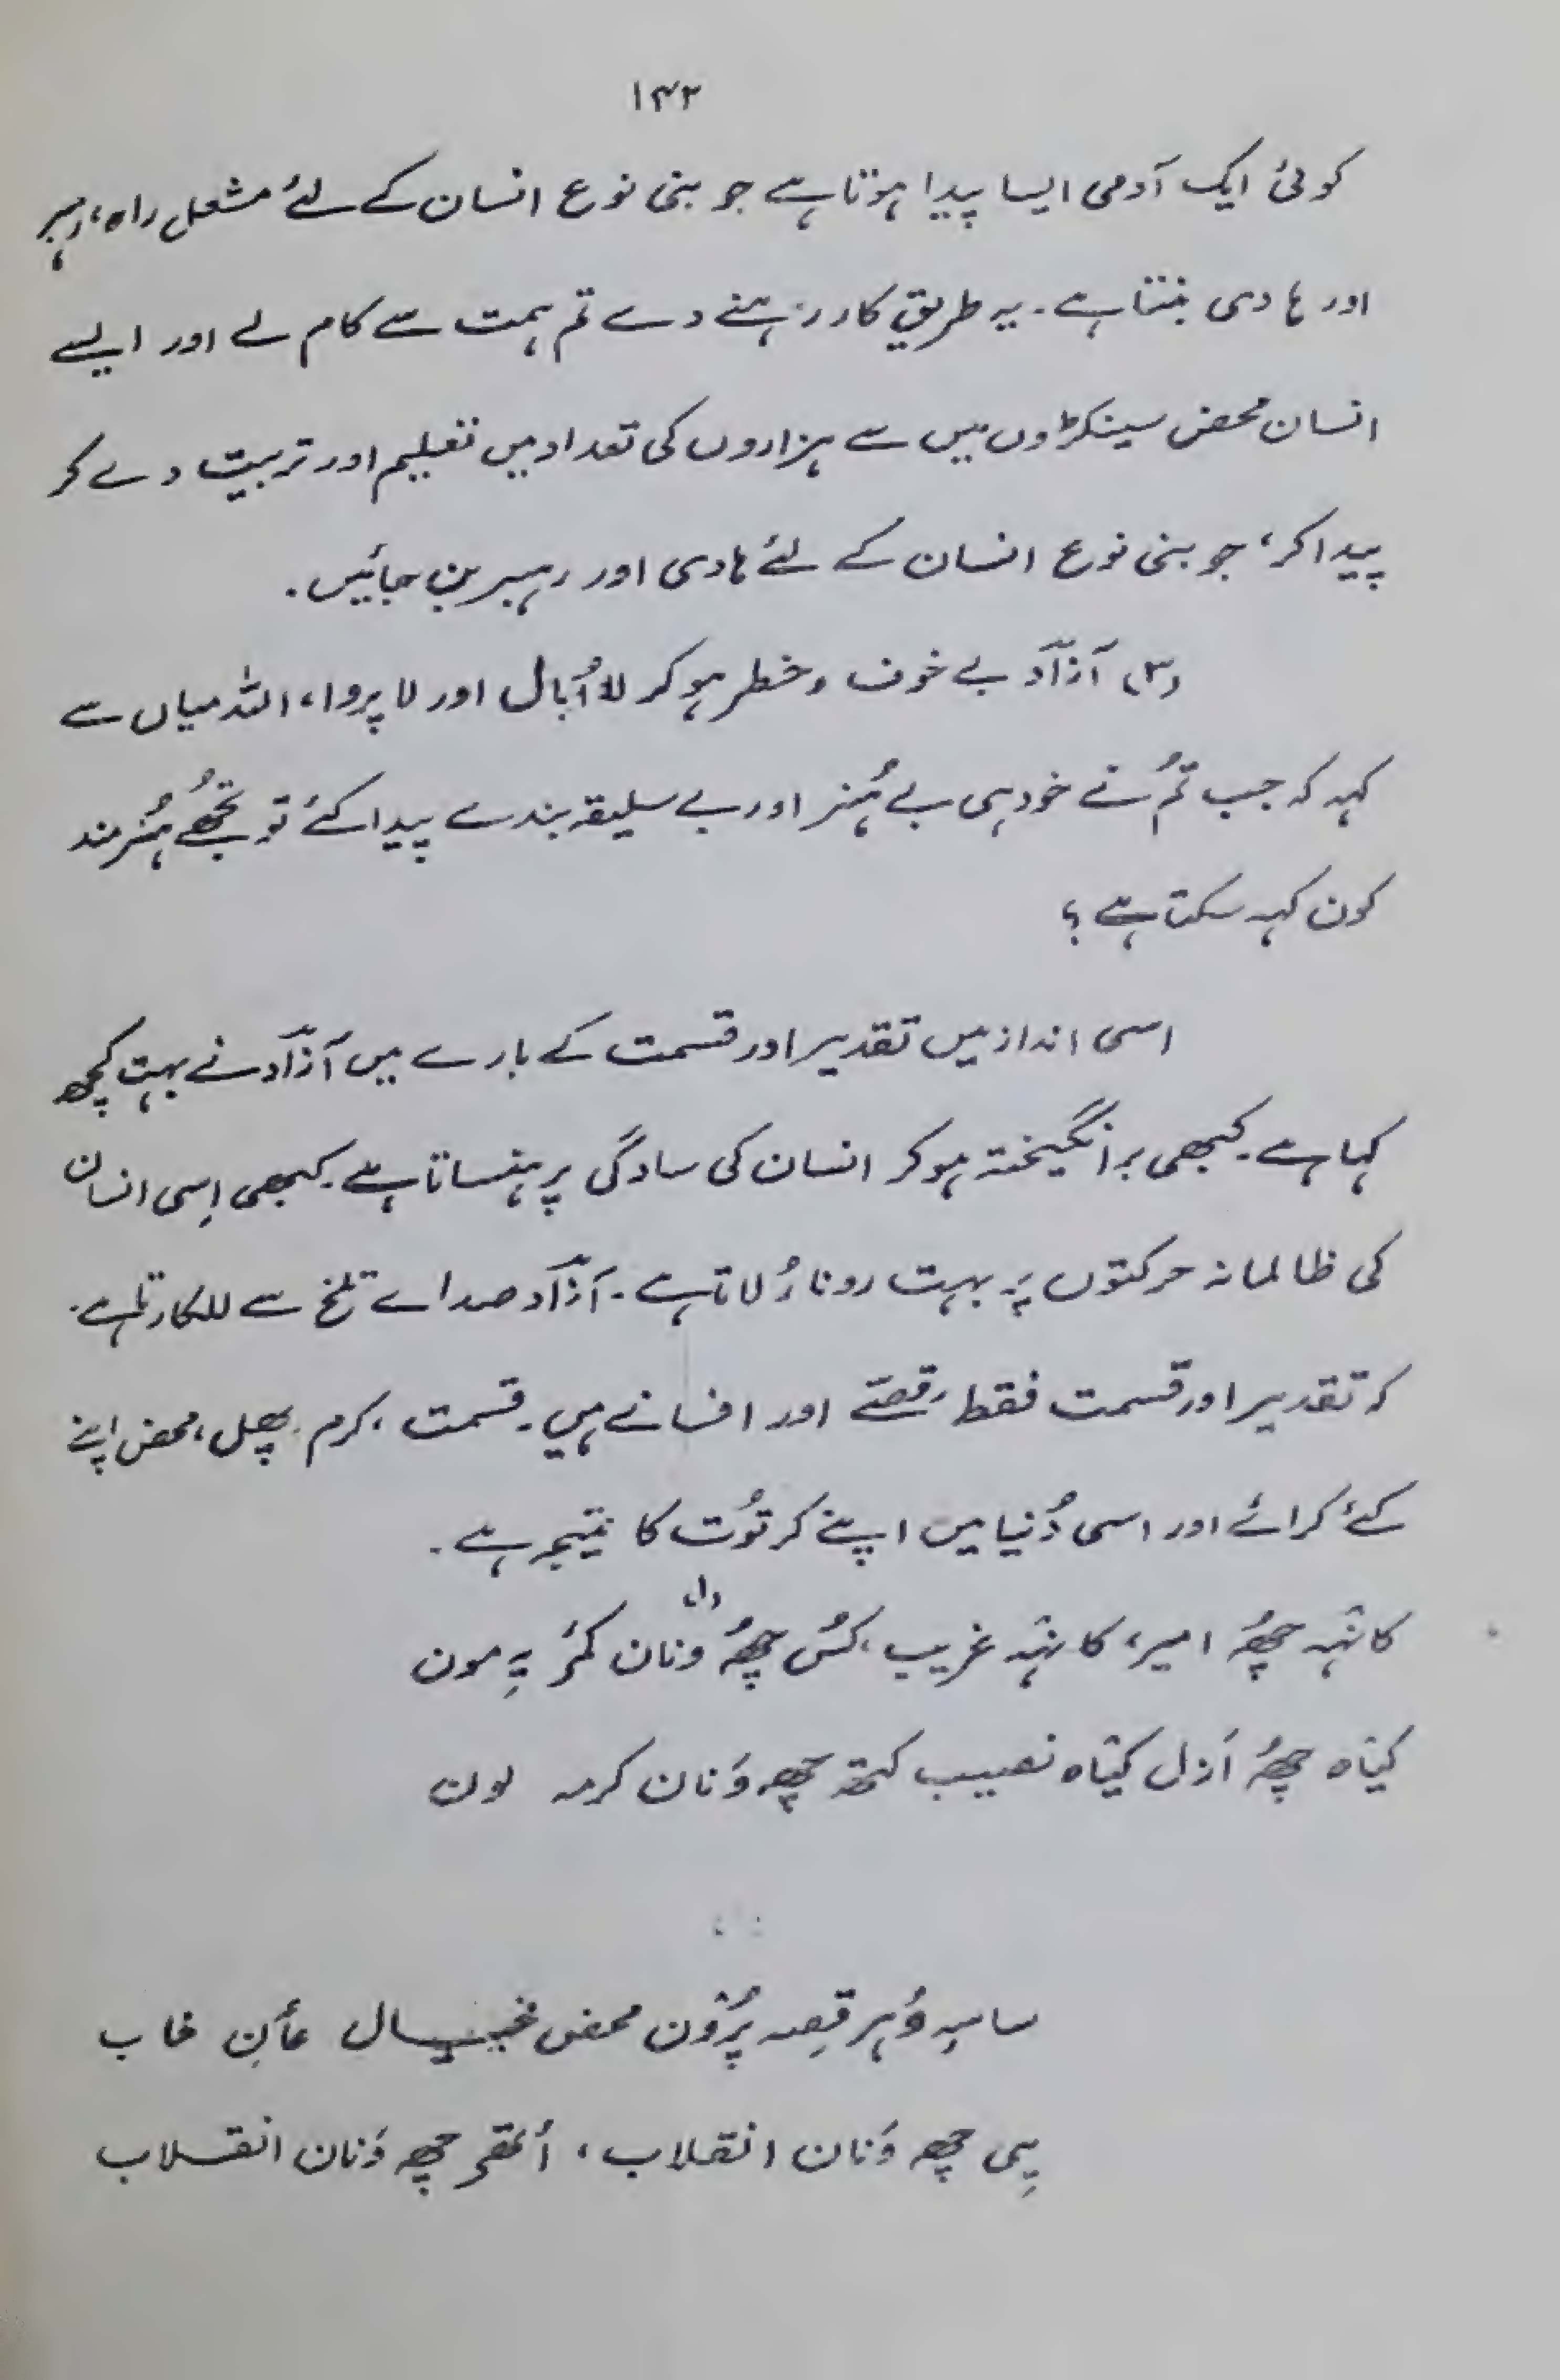 ۱۴۲
کوئی ایک آدمی ایسا پیدا ہوتا ہے جو بنی نوع انسان کے لئے مشعل راہ، رہبر
اور ہادی بنتا ہے۔ یہ طریق کار رہنے دے تم ہمت سے کام لے اور ایسے
انسان محض سینکڑوں میں سے ہزاروں کی تعداد میں تعلیم اور تربیت دے کر
پیدا کر، جو بنی نوع انسان کے لئے ہادی اور رہبر بن جائیں۔
(۳) آزاد بے خوف و خطر ہو کر لا اُبال اور لا پروا، اللہ میاں سے
کہہ کہ جب تُم نے خود ہی بے ہُنر اور بے سلیقہ بندے پیدا کئے تو تجھُے ہُنرمند
کون کہہ سکتا ہے؟
اسی انداز میں تقدیر اور قسمت کے بارے میں آزاد نے بہت کچھ
کہا ہے۔ کبھی برانگیختہ ہو کر انسان کی سادگی پر ہنساتا ہے۔ کبھی اِسی انسان
کی ظالمانہ حرکتوں پہ بہت رونا رُلاتا ہے۔ آزاد صدائے تلخ سے للکارتا ہے۔
کہ تقدیر اور قسمت فقط قصّے اور افسانے ہیں۔ قسمت، کرم، پھل، محض اپنے
کئے کرائے اور اسی دُنیا میں اپنے کرتُوت کا نتیجہ ہے۔
کانہہ چھُہ امیر، کانہہ غریب، کس چھُہ ونان کُر یہِ مون
کیاہ چھُہ اَزل کیاہ نصیب کتھ چھِ وَنان کرمہ لون
محض خیال خاب
یی چھِ وَنان انقلاب، چھِ وَنان انقلاب